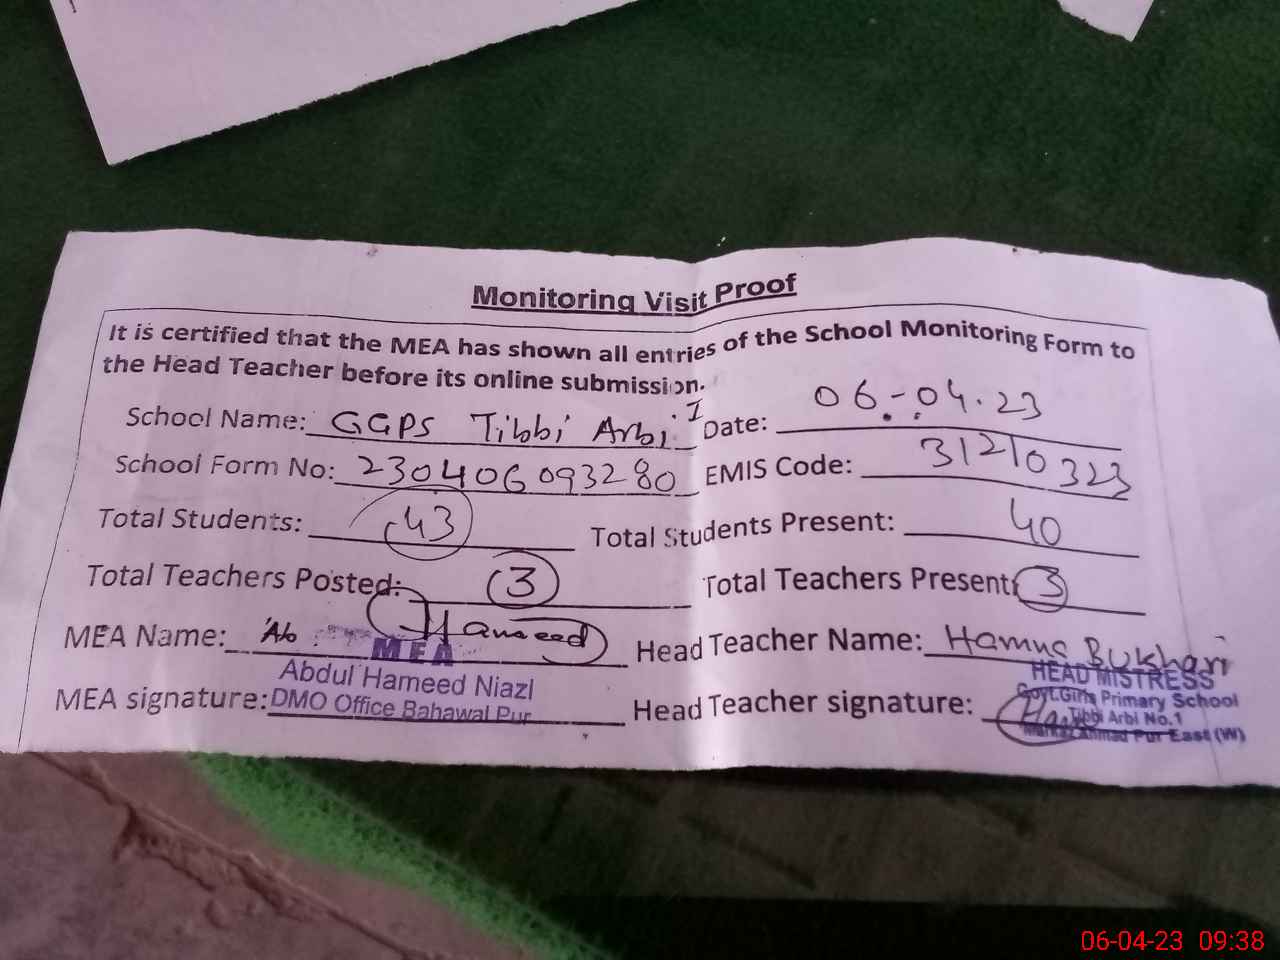 Monitoring Visit Proof
It is certified that the MEA has shown all entries of the School Monitoring Form to
the Head Teacher before its online submission.
School Name: GGPS Tibbi Arbi.I Date: 06-04.23
School Form No: 230406093280 EMIS Code: 31210323
Total Students: 43 Total Students Present: 40
Total Teachers Posted: 3 Total Teachers Present: 3
MEA Name: Ab Hameed Head Teacher Name: Hamna Bukhari
MEA
Abdul Hameed Niazi
MEA signature: DMO Office Bahawal Pur Head Teacher signature:
HEAD MISTRESS
Govt.Girls Primary School
Tibbi Arbi No.1
Markaz Ahmad Pur East (W)
06-04-23 09:38